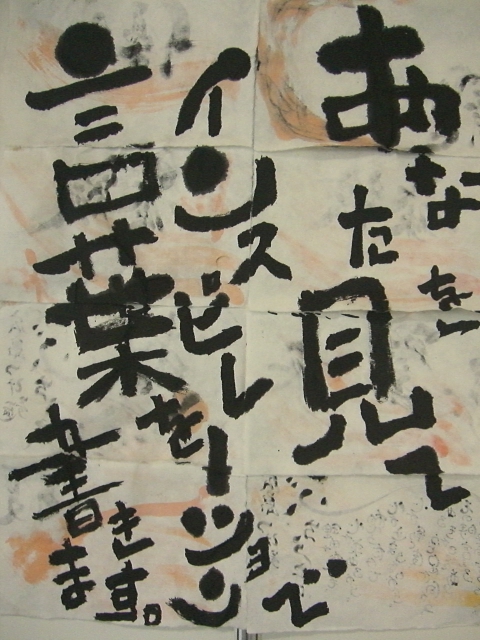 あなたを見て
インスピレーションで
言葉を書きます。